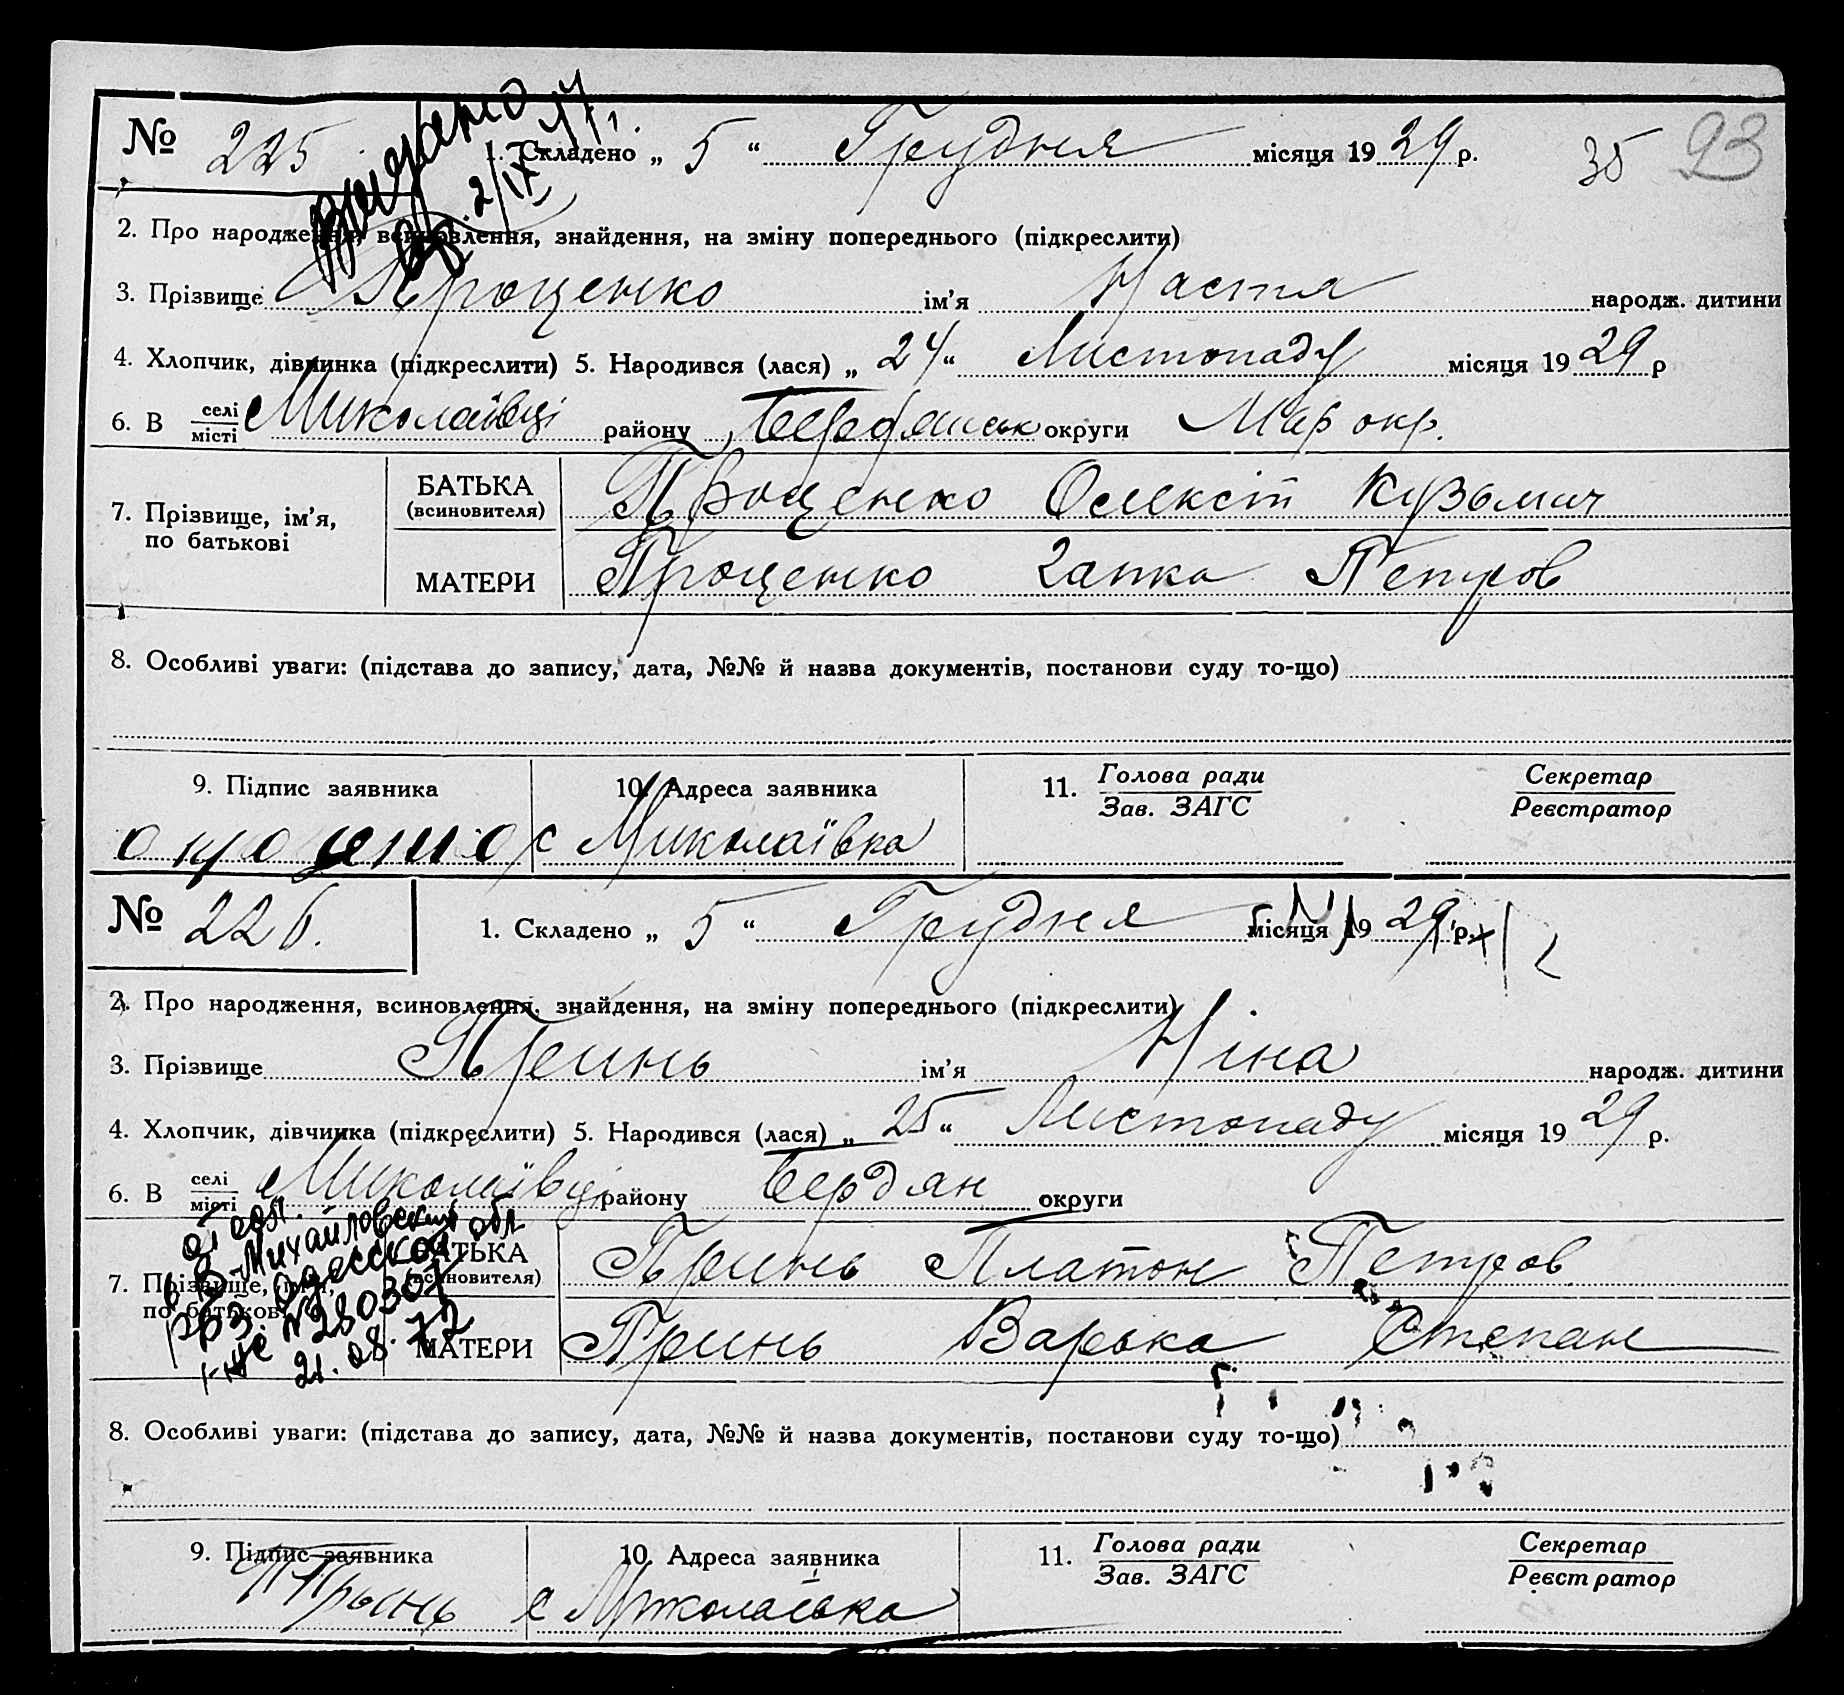 № 225 1. Складено „ 5 “ Грудня місяця 1929 р. 35 93
2. Про народження, всиновлення, знайдення, на зміну попереднього (підкреслити)
3. Прізвище Проценко ім’я Настя народж. дитини
4. Хлопчик, дівчинка (підкреслити) 5. Народився (лася) „ 24 “ Листопаду місяця 1929 р
6. В селі місті Миколаївці району Бердянськ округи Мар окр.
7. Прізвище, ім’я, по батькові
БАТЬКА (всиновителя) Проценко Олексій Кузьмич
МАТЕРИ Проценко Гапка Петров
8. Особливі уваги: (підстава до запису, дата, №№ й назва документів, постанови суду то-що)
9. Підпис заявника 10. Адреса заявника 11. Голова ради Секретар
Зав. ЗАГС Реєстратор
с Миколаївка
№ 226. 1. Складено „ 5 “ Грудня місяця 1929 р.
2. Про народження, всиновлення, знайдення, на зміну попереднього (підкреслити)
3. Прізвище Принь ім’я Ніна народж. дитини
4. Хлопчик, дівчинка (підкреслити) 5. Народився (лася) „ 25 “ Листопаду місяця 1929 р.
6. В селі місті Миколаївці району Бердян округи
7. Прізвище, ім’я, по батькові
БАТЬКА (всиновителя) Принь Платон Петров
МАТЕРИ Принь Варька Степан
Михайловский
Одесской обл
№ 280307
21.08.72
8. Особливі уваги: (підстава до запису, дата, №№ й назва документів, постанови суду то-що)
9. Підпис заявника 10. Адреса заявника 11. Голова ради Секретар
Зав. ЗАГС Реєстратор
с Миколаївка